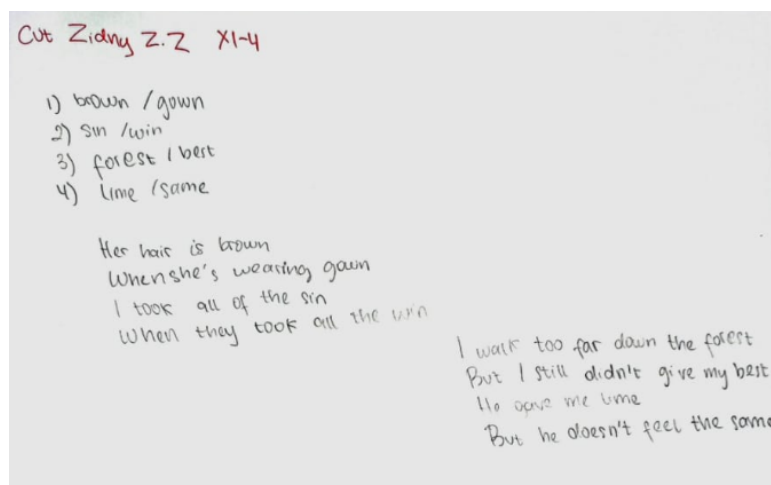 Cut Zidny Z.Z XI-4
1) brown / gown
2) sin / win
3) forest / best
4) lime / same
Her hair is brown
When she's wearing gown
I took all of the sin
When they took all the win
I walk too far down the forest
But I still didn't give my best
He gave me lime
But he doesn't feel the same